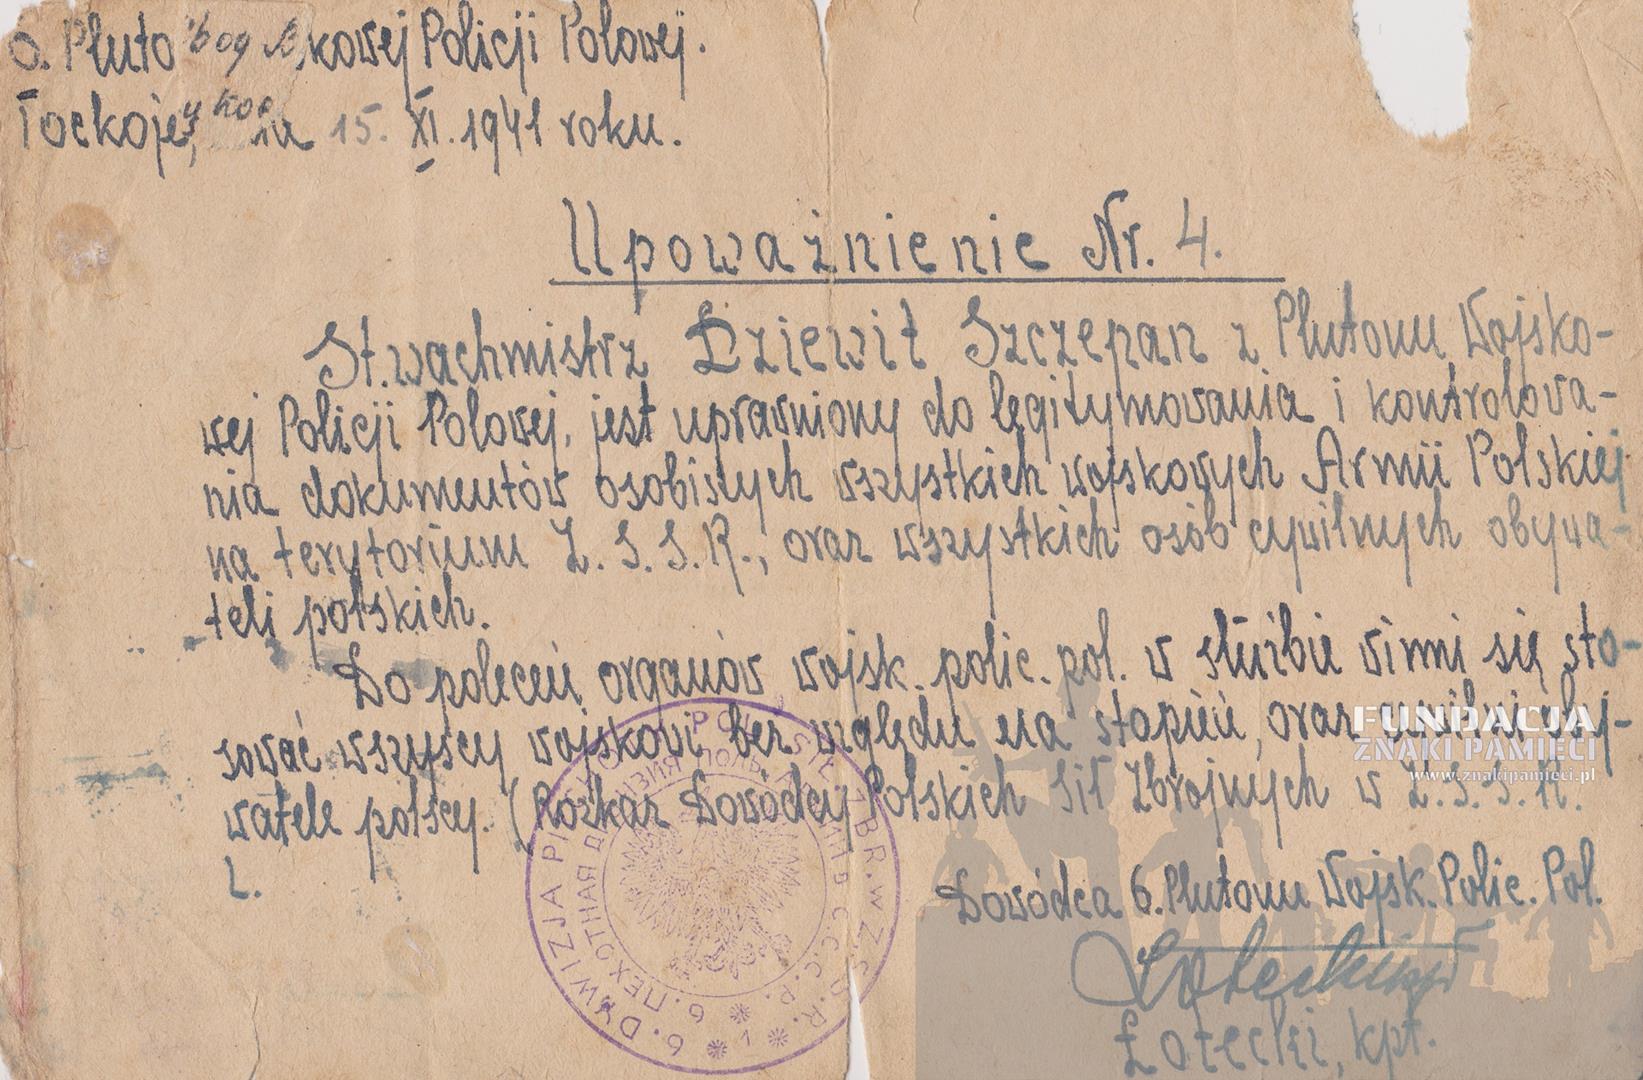 6. Pluto kowej Policji Polowej.
Tockoje, 15. XI. 1941 roku.
Upoważnienie Nr. 4.
St. wachmistrz Dziewit Szczepan z Plutonu Wojsko-
wej Policji Polowej, jest uprawniony do legitymowania i kontrolowa-
nia dokumentów osobistych wszystkich wojskowych Armii Polskiej
na terytorium Z. S. S. R., oraz wszystkich osób cywilnych obywa-
teli polskich.
Do poleceń organów wojsk. polic. pol. w służbie winni się sto-
sować wszyscy wojskowi bez względu na stopień, oraz cywilni oby-
watele polscy. (Rozkaz Dowódcy Polskich Sił Zbrojnych w Z. S. S. R.
L.
Dowódca 6. Plutonu Wojsk. Polic. Pol.
Łotecki, kpt.
6. DYWIZJA POLSK ZBR. w Z.S.S.R.
6. ПЕХОТНАЯ ДИВИЗИЯ В С.С.С.Р.
FUNDACJA
ZNAKI PAMIĘCI
www.znakipamieci.pl